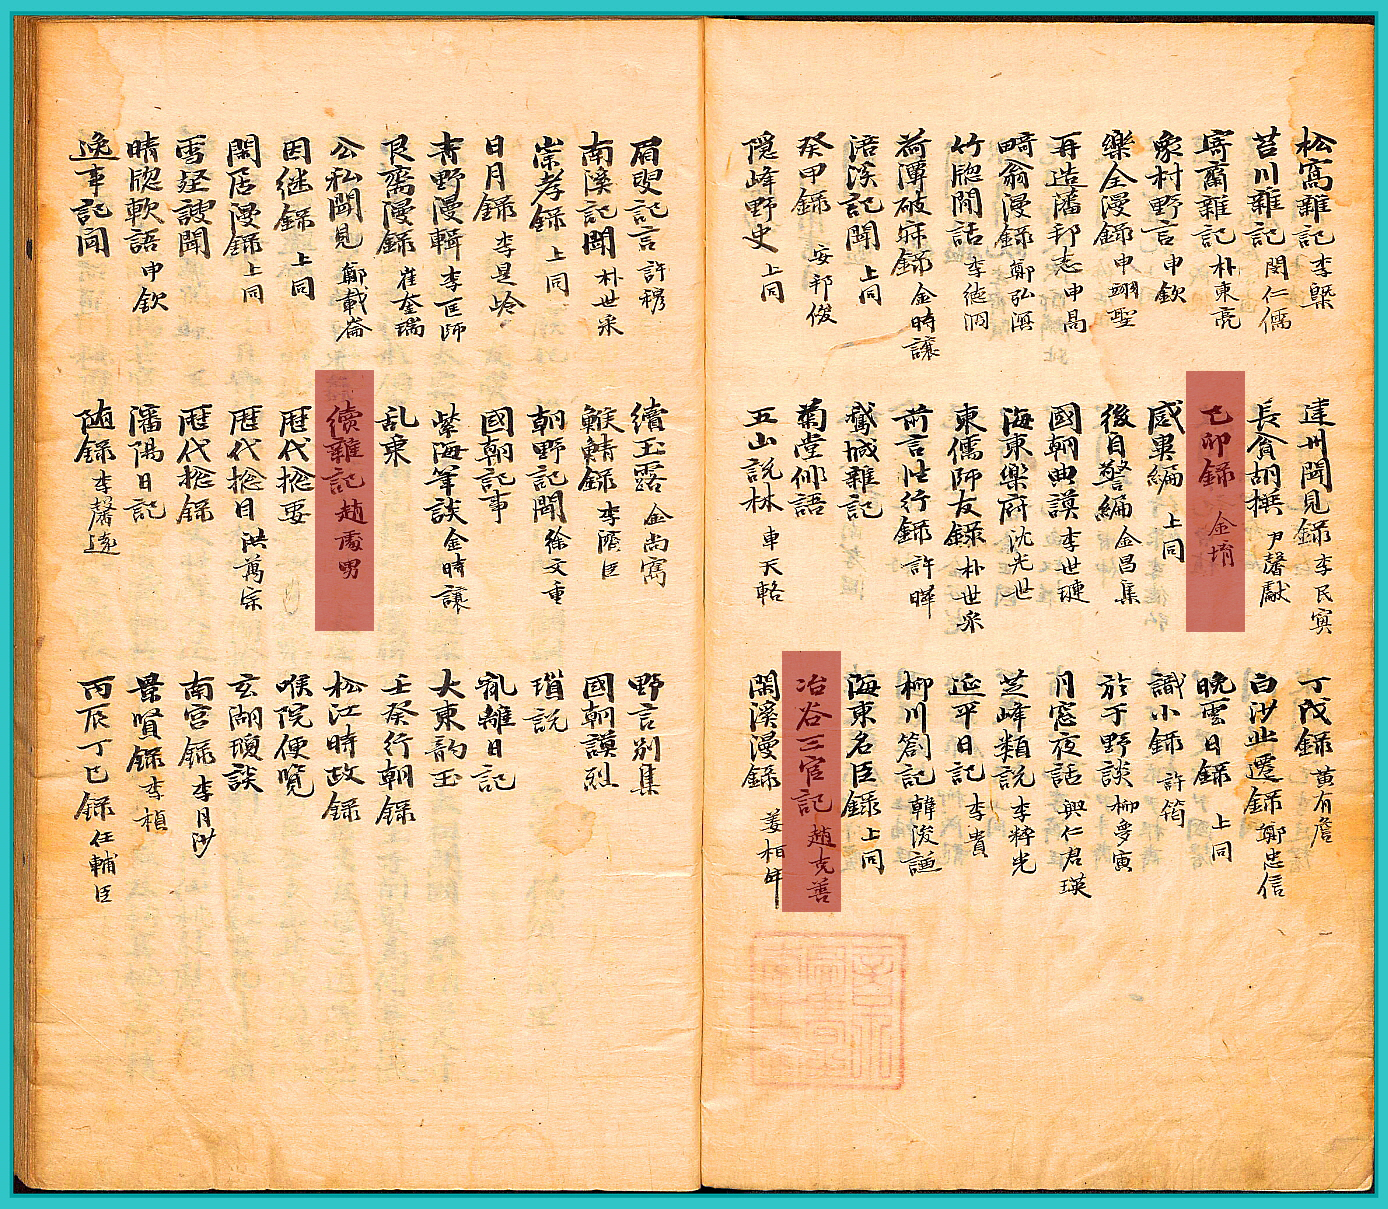 松窩雜記 李墍
苔川雜記 閔仁儒
寄齋雜記 朴東亮
象村野言 申欽
樂全漫錄 申翊聖
再造藩邦志 申炅
畸翁漫錄 鄭弘溟
竹牕閒話 李德泂
荷潭破寂錄 金時讓
涪溪記聞 上同
癸甲錄 安邦俊
隱峰野史 上同
建州聞見錄 李民寏
長貧胡撰 尹馨獻
己卯錄 金堉
感異編 上同
後自警編 金昌集
國朝典謨 李世璡
海東樂府 沈光世
東儒師友錄 朴世采
前言往行錄 許曄
鵞城雜記
菊堂俳語
五山說林 車天輅
丁戊錄 黃有詹
白沙北遷錄 鄭忠信
晚雲日錄 上同
識小錄 許筠
於于野談 柳夢寅
月窓夜話 興仁君瑛
芝峰類說 李粹光
延平日記 李貴
柳川箚記 韓浚謙
海東名臣錄 上同
冶谷三官記 趙克善
閑溪漫錄 姜栢年
眉叟記言 許穆
南溪記聞 朴世采
崇孝錄 上同
日月錄 李星岭
靑野漫輯 李匡師
艮齋漫錄 崔奎瑞
公私聞見 鄭載崙
因繼錄 上同
閑居漫錄 上同
雪壑謏聞
晴牕軟語 申欽
逸事記聞
續玉露 金尙寯
鯸鯖錄 李濟臣
朝野記聞 徐文重
國朝記事
紫海筆談 金時讓
乱稾
續雜記 趙慶男
歷代捴要
歷代捴目 洪萬宗
歷代捴錄
瀋陽日記
陋錄 李馨遠
野言別集
國朝謨烈
瑣說
亂離日記
大東韵玉
壬癸行朝錄
松江時政錄
喉院便覽
玄湖瑣談
南宮錄 李月沙
景賢錄 李楨
丙辰丁巳錄 任輔臣